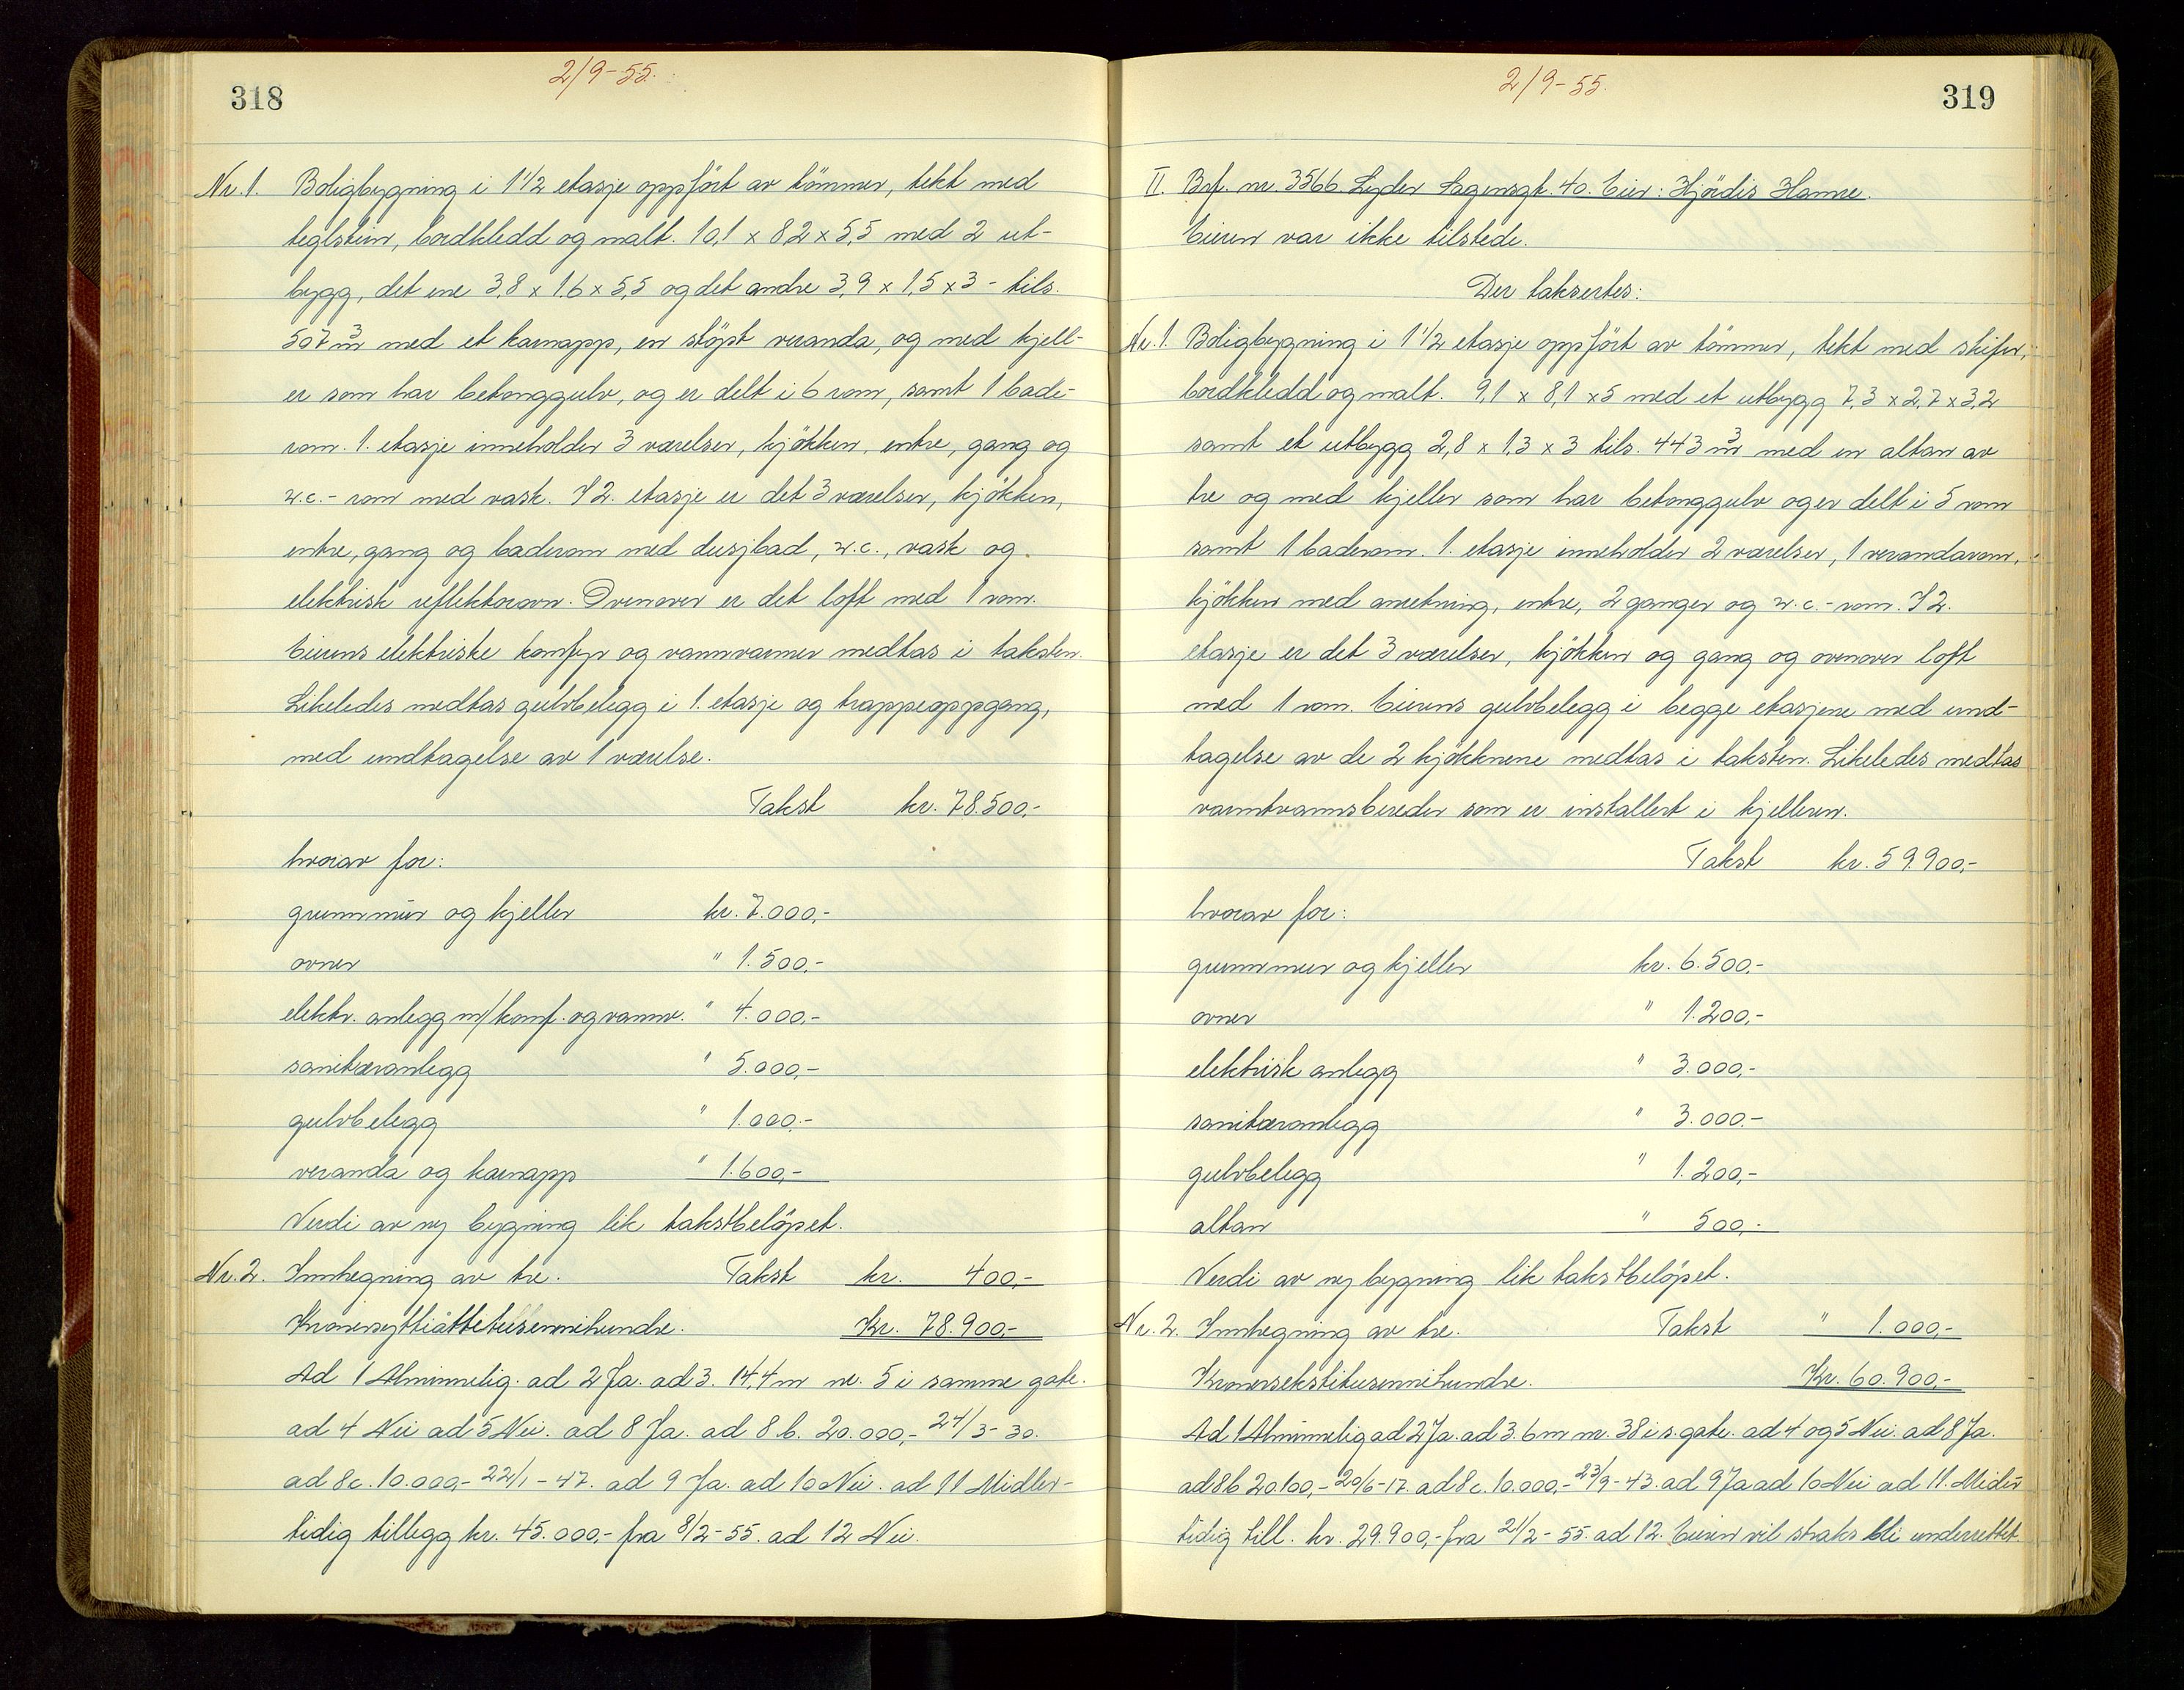 318
2/9-55.
Nr. 1. Boligbygning i 1 1/2 etasje oppført av tømmer, tekt med
teglstein, bordkledd og malt. 10,1 x 8,2 x 5,5 med 2 ut-
bygg, det ene 3,8 x 1,6 x 5,5 og det andre 3,9 x 1,5 x 3 - tils.
507 m³ med et karnapp, en støpt veranda, og med kjell-
er som har betonggulv, og er delt i 6 rom, samt 1 bade-
rom. 1. etasje inneholder 3 værelser, kjøkken, entre, gang og
w.c.- rom med vask. I 2. etasje er det 3 værelser, kjøkken,
entre, gang og baderom med dusjbad, w.c., vask og
elektrisk reflektorovn. Ovenover er det loft med 1 rom.
Eierens elektriske komfyr og vannvarmer medtas i taksten.
Likeledes medtas gulvbelegg i 1. etasje og trappeoppgang,
med undtagelse av 1 værelse.
Takst kr. 78.500,-
hvorav for:
grunnmur og kjeller kr. 7.000,-
ovner " 1.500,-
elektr. anlegg m/komf. og vannv. " 4.000,-
sanitæranlegg " 5.000,-
gulvbelegg " 1.000,-
veranda og karnapp " 1.600,-
Verdi av ny bygning lik takstbeløpet.
Nr. 2. Innhegning av tre. Takst kr. 400,-
Kronersyttiåttetusennihundre. Kr. 78.900,-
Ad 1 Alminnelig. ad 2 Ja. ad 3. 14,4 m nr. 5 i samme gate.
ad 4 Nei ad 5 Nei. ad 8 Ja. ad 8 b. 20.000,- 24/3-30.
ad 8c. 10.000,- 22/1-47. ad 9 Ja. ad 10 Nei. ad 11 Midler-
tidig tillegg kr. 45.000,- fra 8/2-55. ad 12 Nei.
319
2/9-55.
II. Brf. nr. 3566 Lyder Sagensgt. 40. Eier: Hjørdis Hanne.
Eieren var ikke tilstede.
Der taksertes:
Nr. 1. Boligbygning i 1 1/2 etasje oppført av tømmer, tekt med skifer,
bordkledd og malt. 9,1 x 8,1 x 5 med et utbygg 7,3 x 2,7 x 3,2
samt et utbygg 2,8 x 1,3 x 3 tils. 443 m³ med en altan av
tre og med kjeller som har betonggulv og er delt i 5 rom
samt 1 baderom. 1. etasje inneholder 2 værelser, 1 verandarom,
kjøkken med anretning, entre, 2 ganger og w.c.- rom. I 2.
etasje er det 3 værelser, kjøkken og gang og ovenover loft
med 1 rom. Eierens gulvbelegg i begge etasjene med und-
tagelse av de 2 kjøkknene medtas i taksten. Likeledes medtas
varmtvannsbereder som er installert i kjelleren.
Takst kr. 59.900,-
hvorav for:
grunnmur og kjeller kr. 6.500,-
ovner " 1.200,-
elektrisk anlegg " 3.000,-
sanitæranlegg " 3.000,-
gulvbelegg " 1.200,-
altan " 500,-
Verdi av ny bygning lik takstbeløpet.
Nr. 2. Innhegning av tre. Takst " 1.000,-
Kronersekstitusennihundre. Kr. 60.900,-
Ad 1 Alminnelig ad 2 Ja. ad 3. 6 m nr. 38 i s. gate. ad 4 og 5 Nei. ad 8 Ja.
ad 8b 20.100,- 20/6-17. ad 8c. 10.000,- 23/9-43. ad 9 Ja ad 10 Nei ad 11. Midler
tidig till. kr. 29.900,- fra 21/2-55. ad 12. Eieren vil straks bli underrettet.